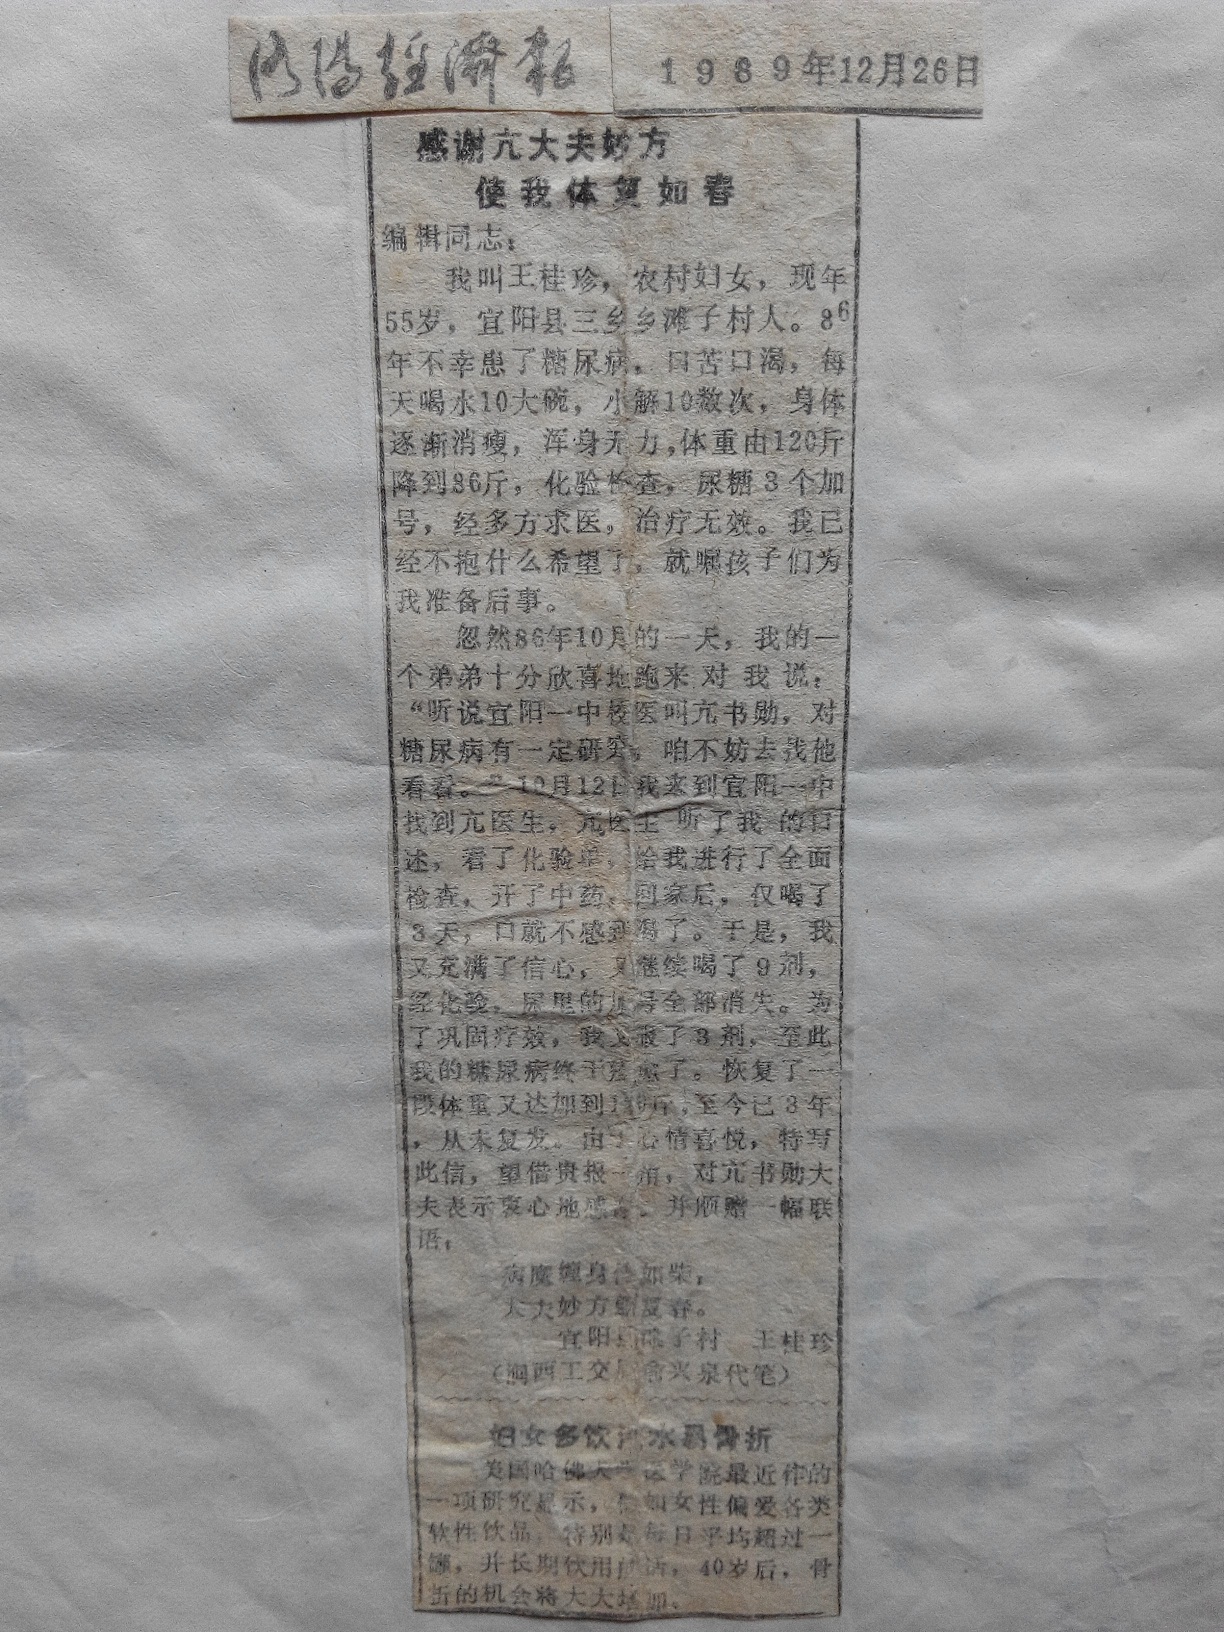 洛阳经济报
1989年12月26日
感谢亢大夫妙方
使我体复如春
编辑同志：
我叫王桂珍，农村妇女，现年
55岁，宜阳县三乡乡滩子村人。86
年不幸患了糖尿病，口苦口渴，每
天喝水10大碗，小解10数次，身体
逐渐消瘦，浑身无力，体重由120斤
降到86斤，化验检查，尿糖3个加
号，经多方求医，治疗无效。我已
经不抱什么希望了，就嘱孩子们为
我准备后事。
忽然86年10月的一天，我的一
个弟弟十分欣喜地跑来对我说：
“听说宜阳一中校医叫亢书勋，对
糖尿病有一定研究，咱不妨去找他
看看。”10月12日我来到宜阳一中
找到亢医生，亢医生听了我的口
述，看了化验单，给我进行了全面
检查，开了中药，回家后，仅喝了
3天，口就不感到渴了。于是，我
又充满了信心，又继续喝了9剂，
经化验，尿里的加号全部消失。为
了巩固疗效，我又服了3剂，至此
我的糖尿病终于痊愈了。恢复了一
段体重又达加到1 0斤，至今已3年
，从未复发。由于心情喜悦，特写
此信，望借贵报一角，对亢书勋大
夫表示衷心地感谢，并顺赠一幅联
语：
病魔缠身 如柴，
大夫妙方 复春。
宜阳县滩子村 王桂珍
（涧西工交 俞兴泉代笔）
妇女多饮汽水易骨折
美国哈佛大学医学院最近作的
一项研究显示，假如女性偏爱各类
软性饮品，特别是每日平均超过一
罐，并长期饮用的话，40岁后，骨
折的机会将大大增加。